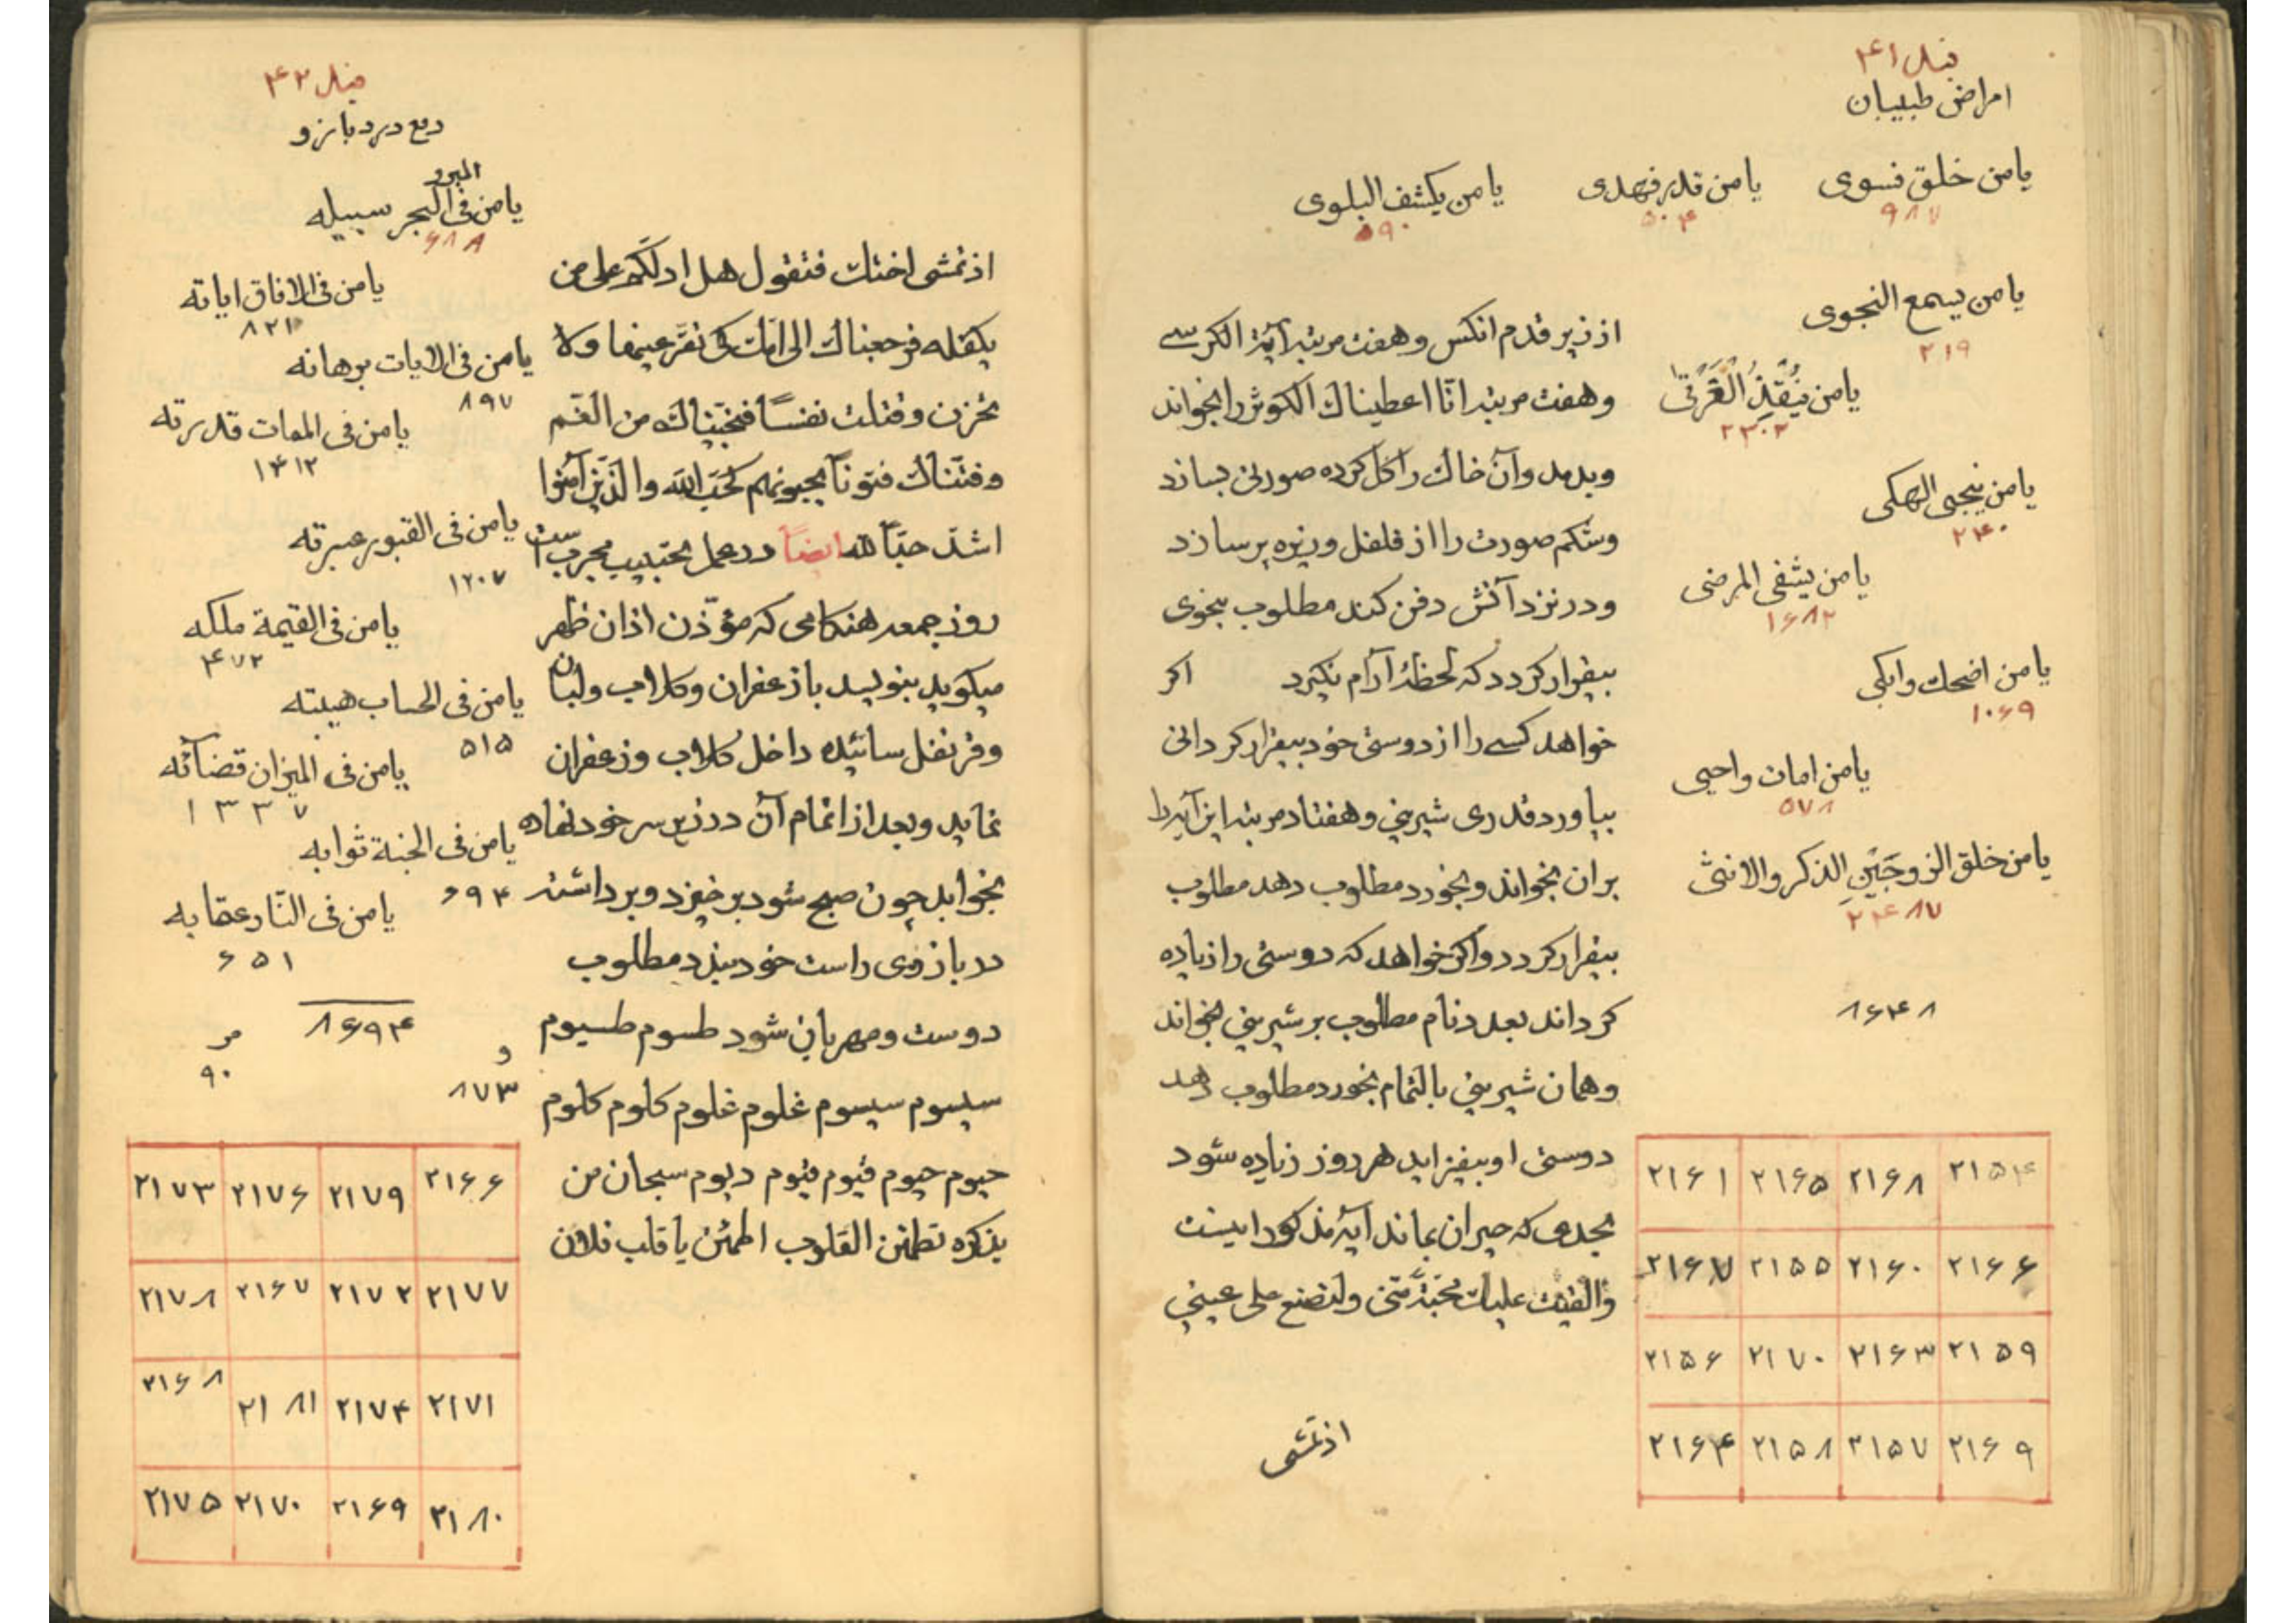 بند ۴۱
امراض طبیبان
یا من خلق فسوی
۹۸۷
یا من قدر فهدی
۵۰۴
یا من یکشف البلوی
۵۹۰
یا من یسمع النجوی
۲۱۹
یا من یُنقِذُ الغَرقی
۲۳۰۲
یا من ینجی الهلکی
۲۴۰
یا من یشفی المرضی
۱۶۸۲
یا من اضحك وابکی
۱۰۶۹
یا من امات واحیی
۵۷۸
یا من خلق الزوجَینِ الذکر والانثی
۲۴۸۷
۸۶۴۸
از زیر قدم انکس وهفت مرتبه آیة الکرسے
وهفت مرتبه انّا اعطیناك الکوثر را بخواند
وبدمد وآن خاك را کل کرده صورتی بسازد
وشکم صورت را از فلفل وزیره پر سازد
ودر نزد آتش دفن کند مطلوب بنحوی
بیقرار کردد که لحظۀ آرام نکیرد اکر
خواهد کسے را از دوستی خود بیقرار کردانی
بیاورد قدری شیرینی وهفتاد مرتبه این آیه را
بران بخواند وبخورد مطلوب دهد مطلوب
بیقرار کردد واکر خواهد که دوستی را زیاده
کرداند بعدد نام مطلوب بر شیرینی بخواند
وهمان شیرینی بالتمام بخورد مطلوب دهد
دوستی او بیفزاید هر روز زیاده شود
بحدی که حیران بماند آیۀ مذکور اینست
والقیت علیك محبّة منّی ولتصنع علی عینی
۲۱۵۴ ۲۱۶۸ ۲۱۶۵ ۲۱۶۱
۲۱۶۶ ۲۱۶۰ ۲۱۵۵ ۲۱۶۷
۲۱۵۹ ۲۱۶۳ ۲۱۷۰ ۲۱۵۶
۲۱۶۹ ۲۱۵۷ ۲۱۵۸ ۲۱۶۴
اذ تمشی
بند ۴۲
دفع درد بازو
البر و
یا من فی البحر سبیله
۶۸۸
یا من فی الافاق ایاته
۸۲۱
یا من فی الایات برهانه
۸۹۷
یا من فی الممات قدرته
۱۴۱۲
یا من فی القبور عبرته
۱۲۰۷
یا من فی القیمة ملکه
۴۷۲
یا من فی الحساب هیبته
۵۱۵
یا من فی المیزان قضائه
۱۳۳۷
یا من فی الجنة ثوابه
۶۹۴
یا من فی النّار عقابه
۶۵۱
۸۶۹۴
۹۰
و
۸۷۳
اذ تمشی اختك فتقول هل ادلّکم علی من
یکفله فرجعناك الی امّك کی تقرّ عینها ولا
تحزن وقتلت نفسًا فنجّیناك من الغم
وفتنّاك فتونًا یحبونهم کحبّ الله والذین آمنوا
اشدّ حبًّا لله ایضاً در عمل تحبیب مجرب است
روز جمعه هنکامی که مؤذّن اذان ظهر
میکوید بنویسد با زعفران وکلاب ولبان
وقرنفل سائیده داخل کلاب وزعفران
نماید وبعد از اتمام آن در زیر سر خود نهاده
بخوابد چون صبح شود برخیزد وبرداشته
در بازوی راست خود بندد مطلوب
دوست ومهربان شود طسوم طسیوم
سیسوم سیسوم غلوم غلوم کلوم کلوم
حیوم حیوم قیوم قیوم دیوم سبحان من
بذکره تطمئن القلوب اطمئن یا قلب فلان
۲۱۶۶ ۲۱۷۹ ۲۱۷۶ ۲۱۷۳
۲۱۷۷ ۲۱۷۲ ۲۱۶۷ ۲۱۷۸
۲۱۷۱ ۲۱۷۴ ۲۱۸۱ ۲۱۶۸
۲۱۸۰ ۲۱۶۹ ۲۱۷۰ ۲۱۷۵